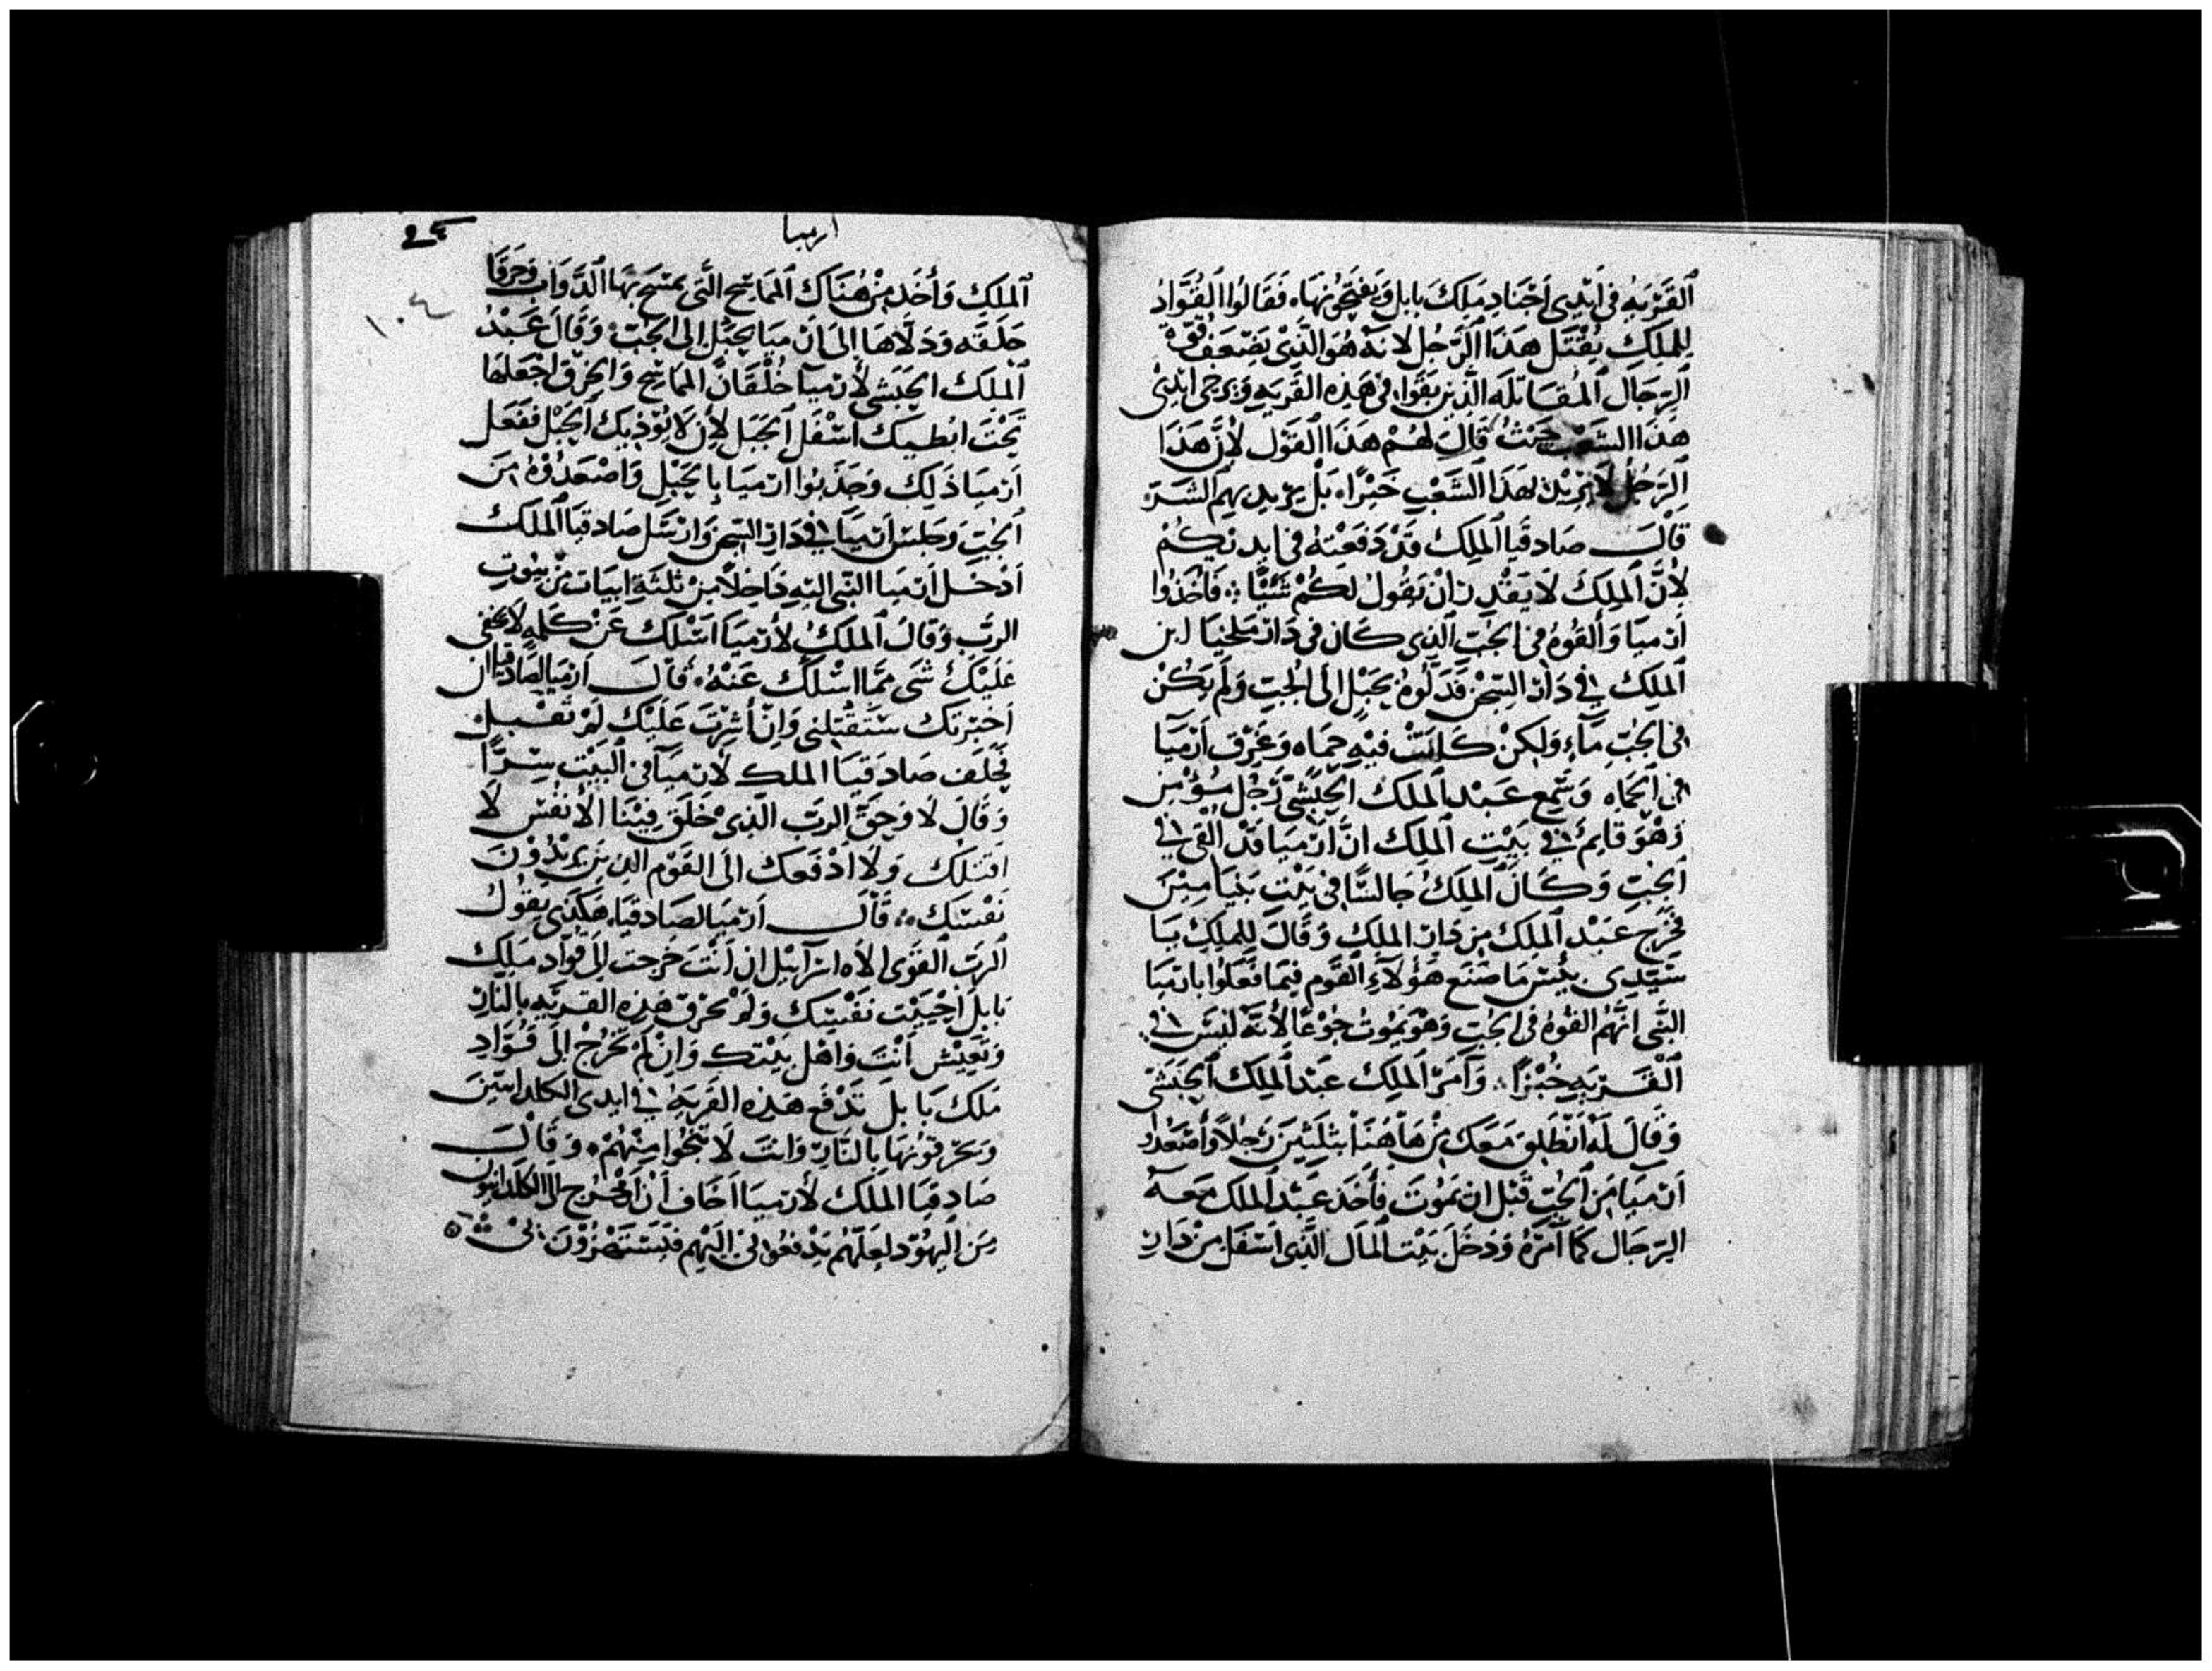 القرية في ايدي اجناد ملك بابل ويفتحونها فقالوا القواد
للملك يقتل هذا الرجل لانه هو الذي يضعف قوة
الرجال المقاتله الذين بقوا في هذه القرية ويرخي ايدي
هذا الشعب حيث قال لهم هذا القول لأن هذا
الرجل لا يريد لهذا الشعب خيرا بل يريد بهم الشر
قال صادقيا الملك قد دفعته في ايديكم
لأن الملك لا يقدر ان يقول لكم شيئا فاخذوا
ارميا وألقوه في الجب الذي كان في دار ملخيا ابن
الملك في دار السجن فدلوه بحبل الى الجب ولم يكن
في الجب ماء ولكن كانت فيه حماه وغرق ارميا
في الحماه وسمع عبد الملك الحبشي رجل مؤمن
وهو قايم في بيت الملك ان ارميا قد القي في
الجب وكان الملك جالسا في بيت بنيامين
فخرج عبد الملك من دار الملك وقال للملك يا
سيدي بئس ما صنع هؤلاء القوم فيما فعلوا بارميا
النبي انهم القوه في الجب وهو يموت جوعا لأنه ليس في
القرية خبزا وأمر الملك عبد الملك الحبشي
وقال له انطلق معك من هاهنا بثلثين رجلا وأصعدوا
ارميا من الجب قبل ان يموت فأخذ عبد الملك معه
الرجال كما أمره ودخل بيت المال الذي اسفل من دار
ارميا
١٠٤
الملك وأخذ من هناك المماسح التي يمسح بها الدواب وخرقا
خلقه ودلاها الى ارميا بحبل الى الجب وقال عبد
الملك الحبشي لأرميا خلقان المماسح والخرق اجعلها
تحت ابطيك اسفل الحبل لأن لا يؤذيك الحبل ففعل
ارميا ذلك وجذبوا ارميا بالحبل واصعدوه من
الجب وجلس ارميا في دار السجن وارسل صادقيا الملك
ادخل ارميا النبي اليه داخلا من ثلثة ابيات من بيوت
الرب وقال الملك لأرميا اسلك عن كلمه لا تخفى
عليك شى مما اسلك عنه قال ارميا لصادقيا ان
اخبرتك ستقتلني وان أشرت عليك لم تقبل
فحلف صادقيا الملك لارميا في البيت سرا
وقال لا وحق الرب الذي خلق فينا الأنفس لا
اقتلك ولا ادفعك الى القوم الذين يريدون
نفسك قال ارميا لصادقيا هكذى يقول
الرب القوى الاه اسرآئيل ان أنت خرجت الى قواد ملك
بابل احييت نفسك ولم تحرق هذه القريه بالنار
وتعيش أنت واهل بيتك وان لم تخرج الى قواد
ملك بابل تدفع هذه القرية في ايدي الكلدانيين
ويحرقونها بالنار وانت لا تنجوا منهم وقال
صادقيا الملك لأرميا اخاف أن أخرج الى الكلدانيون
من اليهود لعلهم يدفعوني اليهم فيستهزؤن بي